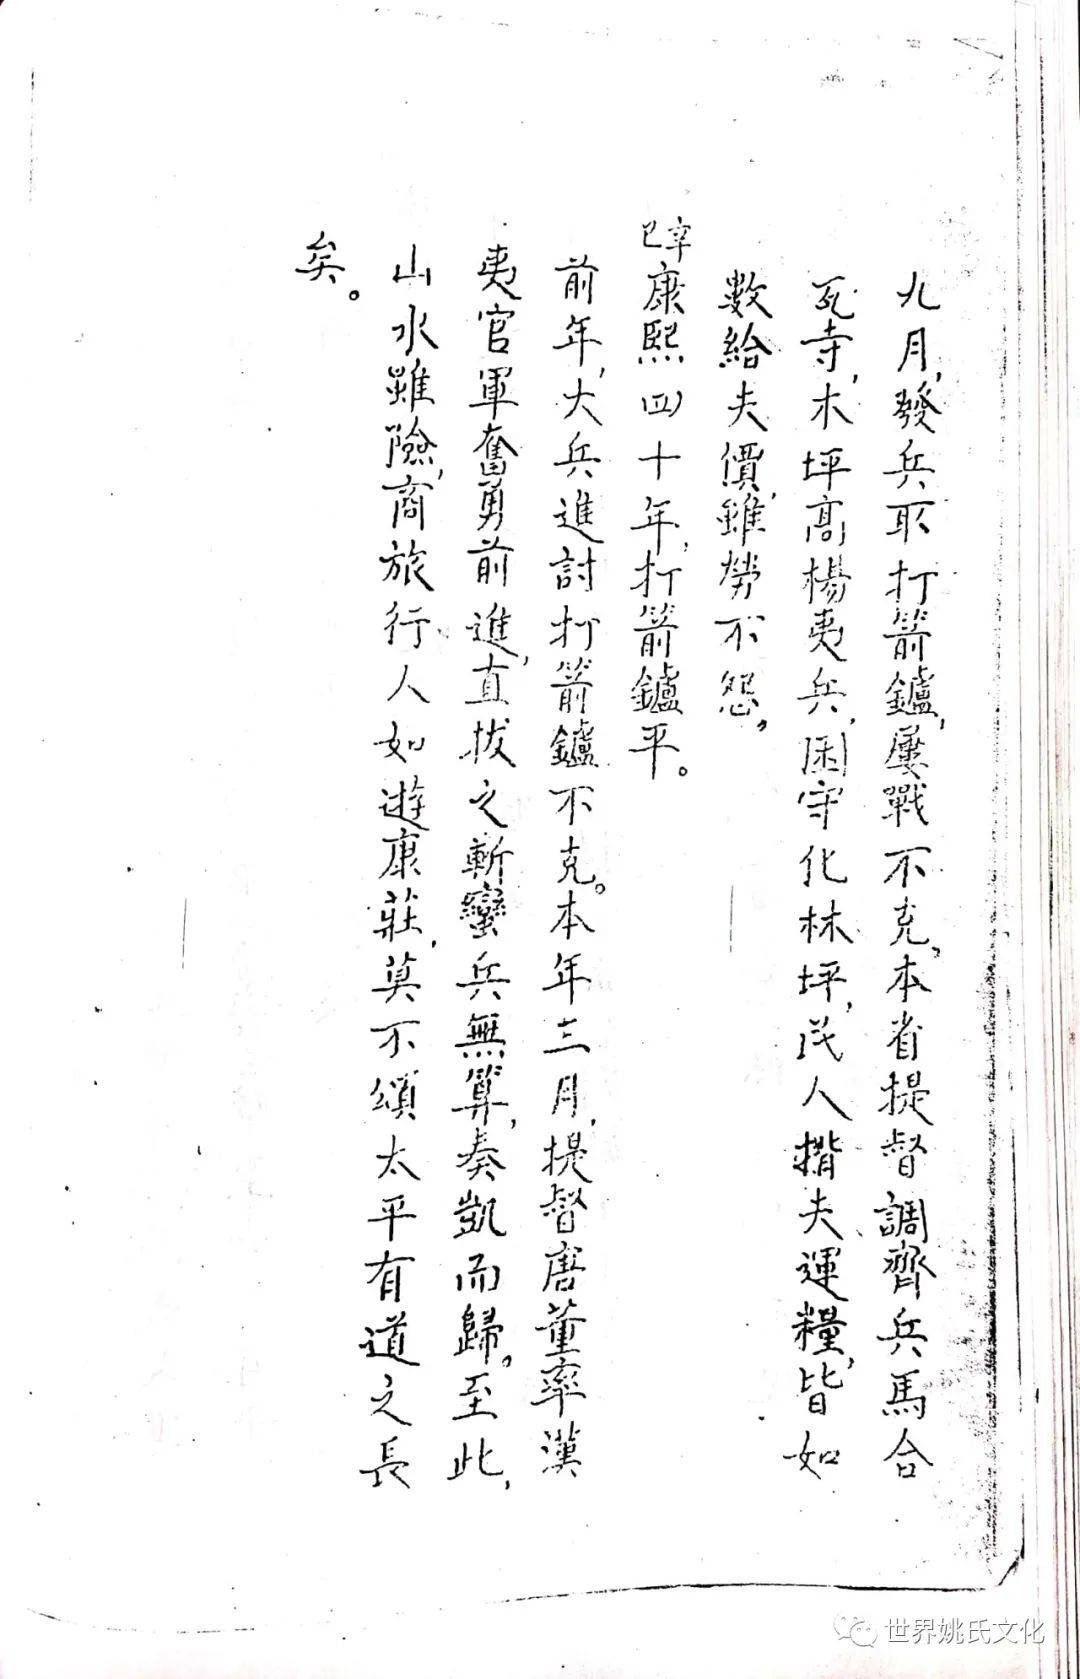 九月,發兵取打箭鑪,屢戰不克,本省提督調齊兵馬合
瓦寺,木坪高楊夷兵,困守化林坪,民人揹夫運糧,皆如
數給夫價,雖勞不怨,
辛巳康熙四十年,打箭鑪平。
前年,大兵進討打箭鑪不克。本年三月,提督唐董率漢
夷官軍奮勇前進,直拔之斬蠻兵無算,奏凱而歸。至此,
山水雖險,商旅行人如遊康莊,莫不頌太平有道之長
矣。
世界姚氏文化